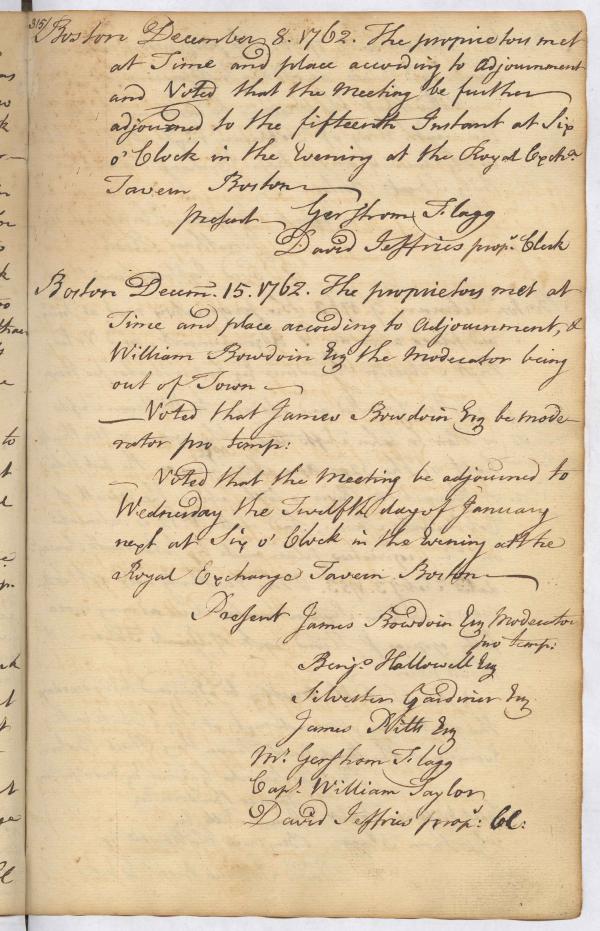 315/
Boston December 8. 1762. The proprietors met
at Time and place according to adjournment
and Voted that the Meeting be further
adjourned to the fifteenth Instant at Six
o'Clock in the Evening at the Royal Exch.a
Tavern Boston
present Gershom Flagg
David Jeffries prop.s Clerk
Boston Decem.r 15. 1762. The proprietors met at
Time and place according to adjournment, &
William Bowdoin Esq the Moderator being
out of Town
Voted that James Bowdoin Esq be mode
rator pro temp:
Voted that the Meeting be adjourned to
Wednesday the Twelfth day of January
next at Six o'Clock in the Evening at the
Royal Exchange Tavern Boston
Present James Bowdoin Esq Moderator
pro temp:
Benj.a Hallowell Esq
Silvester Gardiner Esq
James Pitts Esq
M.r Gershom Flagg
Cap.t William Taylor
David Jeffries prop.s: Cl: